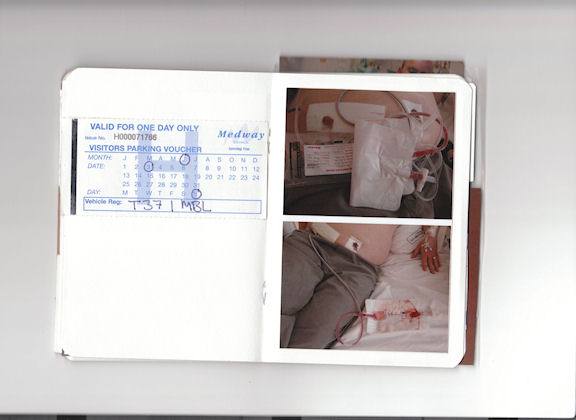 VALID FOR ONE DAY ONLY
Issue No. H000071766
Medway
Serving You
VISITORS PARKING VOUCHER
MONTH: J F M A M J J A S O N D
DATE: 1 2 3 4 5 6 7 8 9 10 11 12
13 14 15 16 17 18 19 20 21 22 23 24
25 26 27 28 29 30 31
DAY: M T W T F S S
Vehicle Reg: T371 MBL